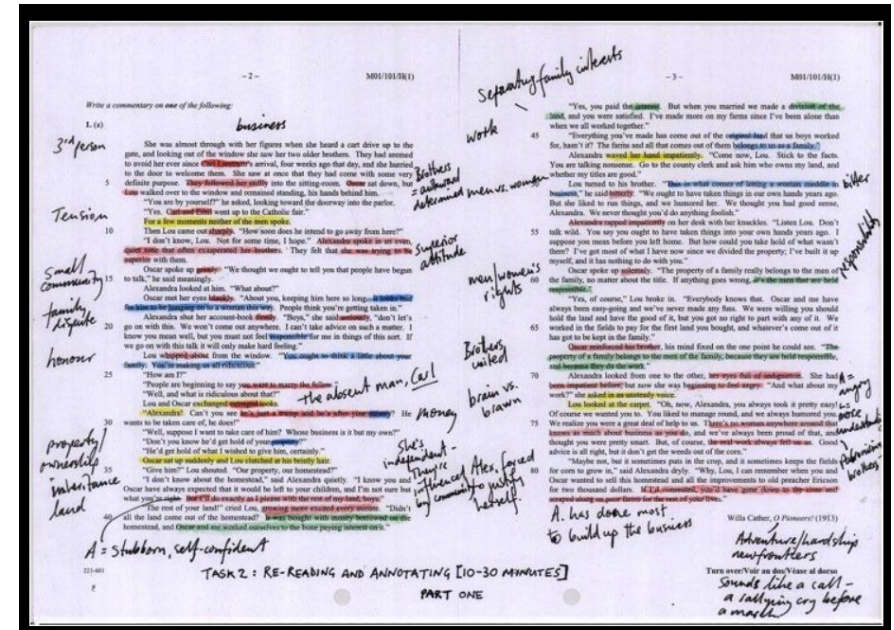 - 2 -
M01/101/H(1)
Write a commentary on one of the following:
1. (a)
business
3rd person
She was almost through with her figures when she heard a cart drive up to the
gate, and looking out of the window she saw her two older brothers. They had seemed
to avoid her ever since Carl Linstrum's arrival, four weeks ago that day, and she hurried
to the door to welcome them. She saw at once that they had come with some very
5 definite purpose. They followed her stiffly into the sitting-room. Oscar sat down, but
Lou walked over to the window and remained standing, his hands behind him.
"You are by yourself?" he asked, looking toward the doorway into the parlor.
"Yes. Carl and Emil went up to the Catholic fair."
For a few moments neither of the men spoke.
10 Then Lou came out sharply. "How soon does he intend to go away from here?"
"I don't know, Lou. Not for some time, I hope." Alexandra spoke in an even,
quiet tone that often exasperated her brothers. They felt that she was trying to be
superior with them.
Oscar spoke up grimly. "We thought we ought to tell you that people have begun
15 to talk," he said meaningly.
Alexandra looked at him. "What about?"
Oscar met her eyes blankly. "About you, keeping him here so long. It looks bad
for him to be hanging on to a woman this way. People think you're getting taken in."
Alexandra shut her account-book firmly. "Boys," she said seriously, "don't let's
20 go on with this. We won't come out anywhere. I can't take advice on such a matter. I
know you mean well, but you must not feel responsible for me in things of this sort. If
we go on with this talk it will only make hard feeling."
Lou whipped about from the window. "You ought to think a little about your
family. You're making us all ridiculous."
25 "How am I?"
"People are beginning to say you want to marry the fellow."
"Well, and what is ridiculous about that?"
Lou and Oscar exchanged outraged looks.
"Alexandra! Can't you see he's just a tramp and he's after your money? He
30 wants to be taken care of, he does!"
"Well, suppose I want to take care of him? Whose business is it but my own?"
"Don't you know he'd get hold of your property?"
"He'd get hold of what I wished to give him, certainly."
Oscar sat up suddenly and Lou clutched at his bristly hair.
35 "Give him?" Lou shouted. "Our property, our homestead?"
"I don't know about the homestead," said Alexandra quietly. "I know you and
Oscar have always expected that it would be left to your children, and I'm not sure but
what you're right. But I'll do exactly as I please with the rest of my land, boys."
"The rest of your land!" cried Lou, growing more excited every minute. "Didn't
40 all the land come out of the homestead? It was bought with money borrowed on the
homestead, and Oscar and me worked ourselves to the bone paying interest on it."
Tension
Small
community
family
dispute
honour
property/
ownership
inheritance
land
A = stubborn, self-confident
Brothers
= awkward
determined
men vs. women
Superior
attitude
The absent man, Carl
money
She's
independent -
They're
influenced
by community
Alex. forced
to justify
herself.
221-001
TASK 2: RE-READING AND ANNOTATING [10-30 MINUTES]
PART ONE
separating family interests
work
- 3 -
M01/101/H(1)
"Yes, you paid the interest. But when you married we made a division of the
land, and you were satisfied. I've made more on my farms since I've been alone than
when we all worked together."
45 "Everything you've made has come out of the original land that us boys worked
for, hasn't it? The farms and all that comes out of them belongs to us as a family."
Alexandra waved her hand impatiently. "Come now, Lou. Stick to the facts.
You are talking nonsense. Go to the county clerk and ask him who owns my land, and
whether my titles are good."
50 Lou turned to his brother. "This is what comes of letting a woman meddle in
business," he said bitterly. "We ought to have taken things in our own hands years ago.
But she liked to run things, and we humored her. We thought you had good sense,
Alexandra. We never thought you'd do anything foolish."
Alexandra rapped impatiently on her desk with her knuckles. "Listen Lou. Don't
55 talk wild. You say you ought to have taken things into your own hands years ago. I
suppose you mean before you left home. But how could you take hold of what wasn't
there? I've got most of what I have now since we divided the property; I've built it up
myself, and it has nothing to do with you."
Oscar spoke up solemnly. "The property of a family really belongs to the men of
60 the family, no matter about the title. If anything goes wrong, it's the men that are held
responsible."
"Yes, of course," Lou broke in. "Everybody knows that. Oscar and me have
always been easy-going and we've never made any fuss. We were willing you should
hold the land and have the good of it, but you got no right to part with any of it. We
65 worked in the fields to pay for the first land you bought, and whatever's come out of it
has got to be kept in the family."
Oscar reinforced his brother, his mind fixed on the one point he could see. "The
property of a family belongs to the men of the family, because they are held responsible,
and because they do the work."
70 Alexandra looked from one to the other, her eyes full of indignation. She had
been impatient before, but now she was beginning to feel angry. "And what about my
work?" she asked in an unsteady voice.
Lou looked at the carpet. "Oh, now, Alexandra, you always took it pretty easy!
Of course we wanted you to. You liked to manage round, and we always humored you.
75 We realize you were a great deal of help to us. There's no woman anywhere around that
knows as much about business as you do, and we've always been proud of that, and
thought you were pretty smart. But, of course, the real work always fell on us. Good
advice is all right, but it don't get the weeds out of the corn."
"Maybe not, but it sometimes puts in the crop, and it sometimes keeps the fields
80 for corn to grow in," said Alexandra dryly. "Why, Lou, I can remember when you and
Oscar wanted to sell this homestead and all the improvements to old preacher Ericson
for two thousand dollars. If I'd consented, you'd have gone down to the river and
scraped along on poor farms for the rest of your lives."
bitter
responsibility
men/women's
rights
Brothers
united
brain vs.
brawn
A =
angry
Patronising
brothers
A. has done most
to build up the business
Willa Cather, O Pioneers! (1913)
Adventure/hardship
new frontiers
Turn over/Voir au dos/Véase al dorso
Sounds like a call -
a rallying cry before
a march